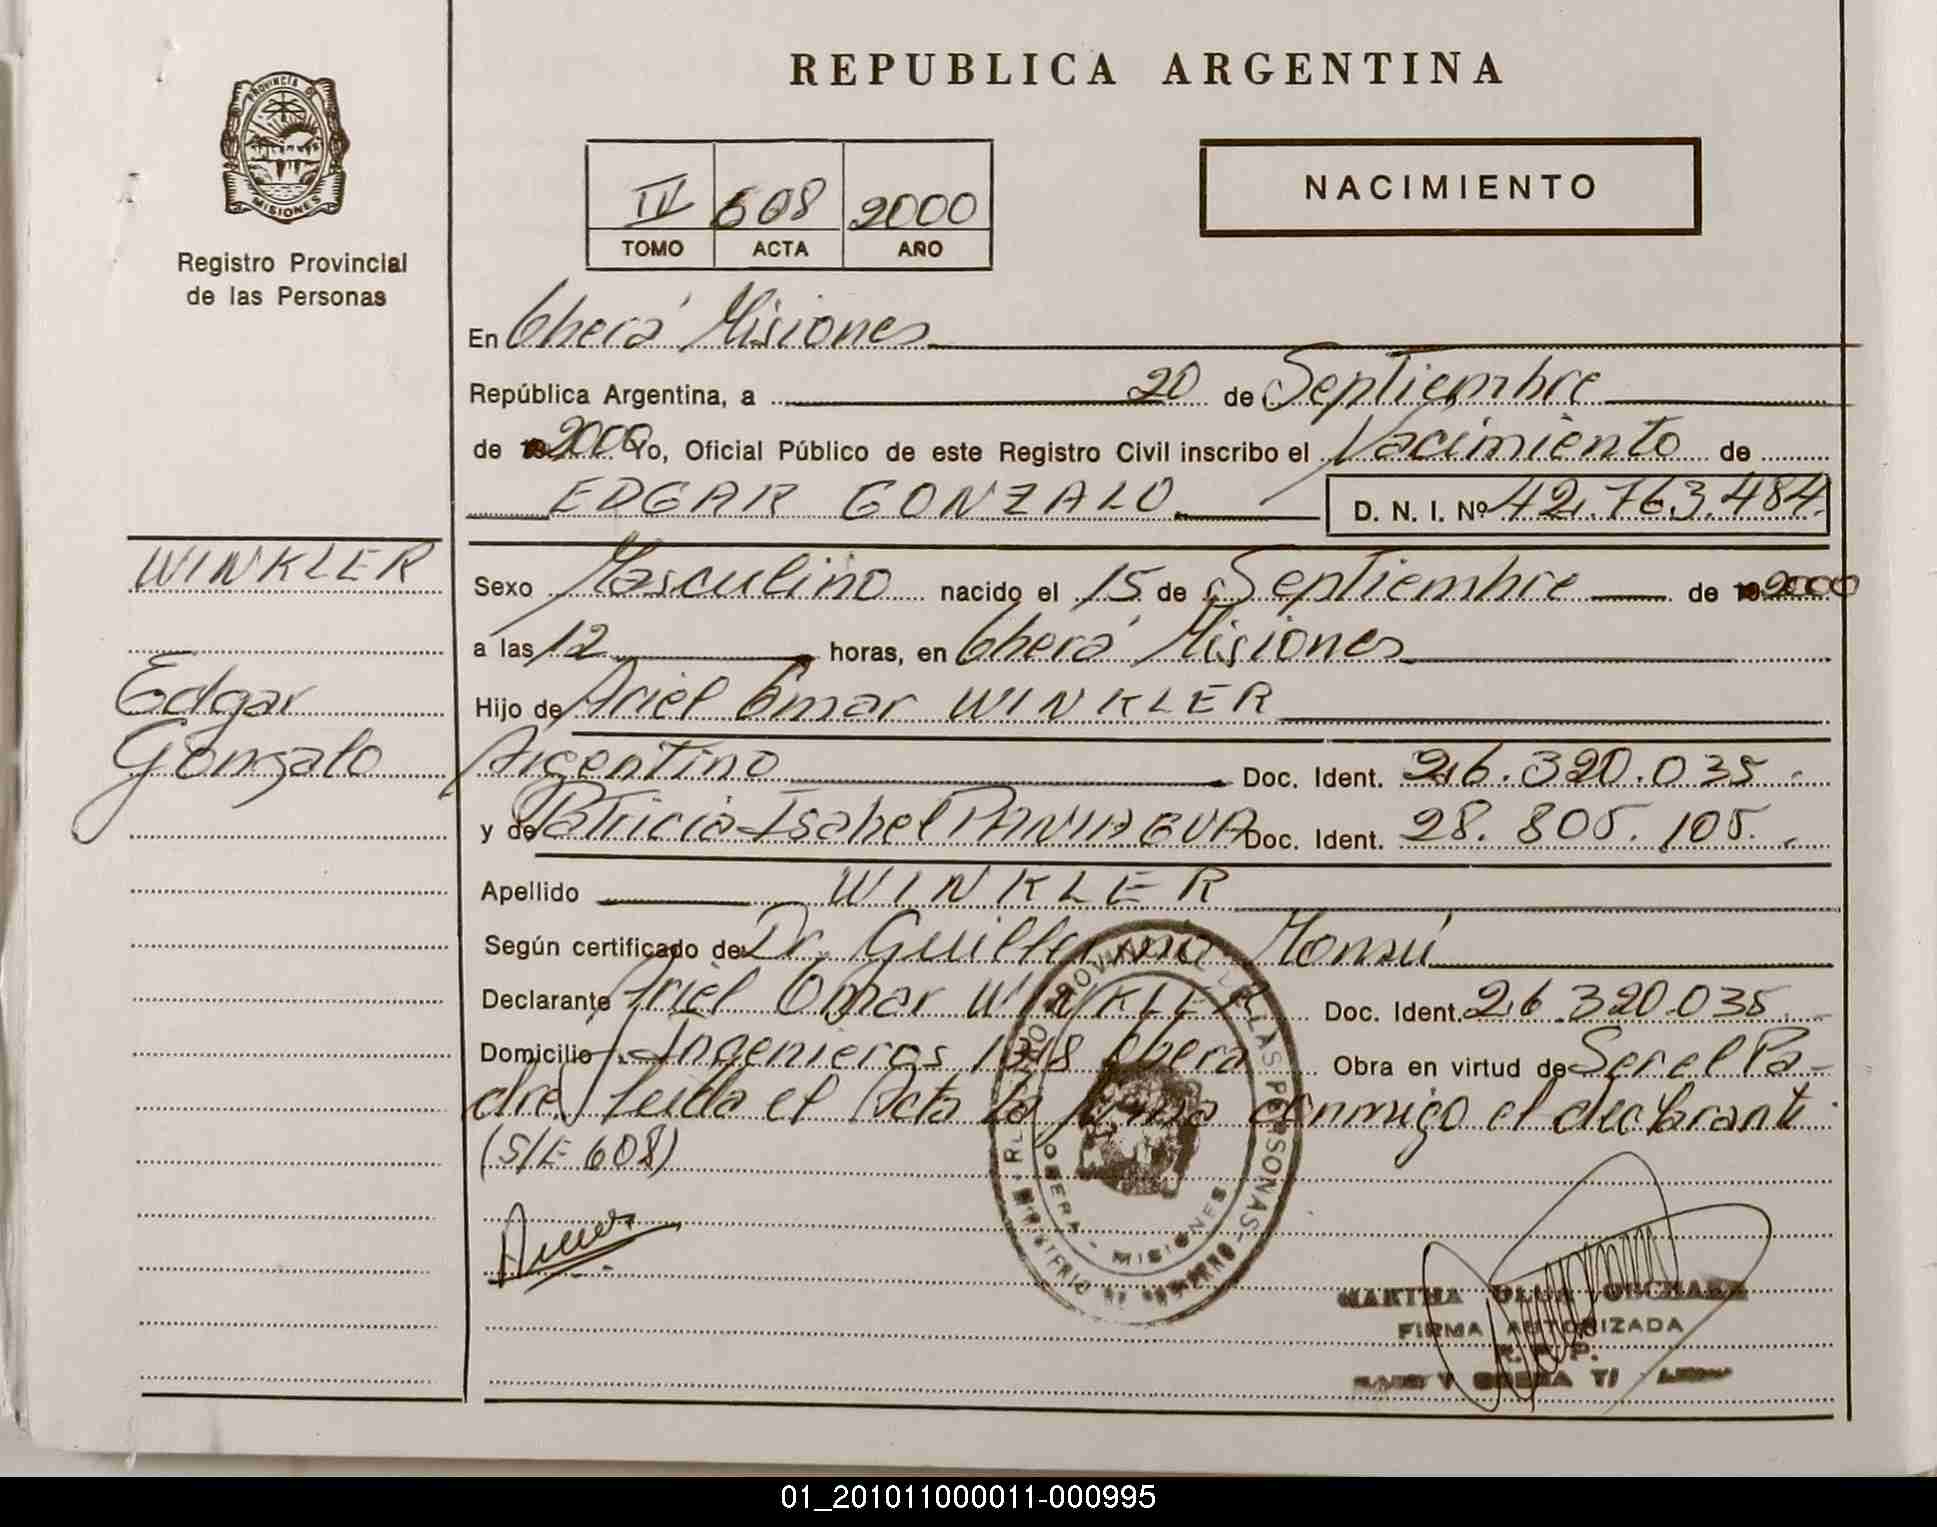 REPUBLICA ARGENTINA
PROVINCIA DE
MISIONES
Registro Provincial
de las Personas
IV 608 2000
TOMO ACTA AÑO
NACIMIENTO
En Oberá Misiones
República Argentina, a 20 de Septiembre
de 2000 Yo, Oficial Público de este Registro Civil inscribo el Nacimiento de
EDGAR GONZALO D. N. I. Nº 42.763.484.
WINKLER
Edgar
Gonzalo
Sexo Masculino nacido el 15 de Septiembre de 2000
a las 12 horas, en Oberá Misiones
Hijo de Ariel Omar WINKLER
Argentino Doc. Ident. 26.320.035
y de Patricia Isabel PANIAGUA Doc. Ident. 28.805.105.
Apellido WINKLER
Según certificado de Dr. Guillermo Monsú
Declarante Ariel Omar WINKLER Doc. Ident. 26.320.035
Domicilio Ingenieros 1318 Oberá Obra en virtud de Ser el Pa-
dre, leída el Acta la firma conmigo el declarante.
(S/E 608)
REGISTRO PROVINCIAL DE LAS PERSONAS
OBERA - MISIONES
MINISTERIO DE GOBIERNO
MARTHA
FIRMA AUTORIZADA
R. P. P.
01_201011000011-000995